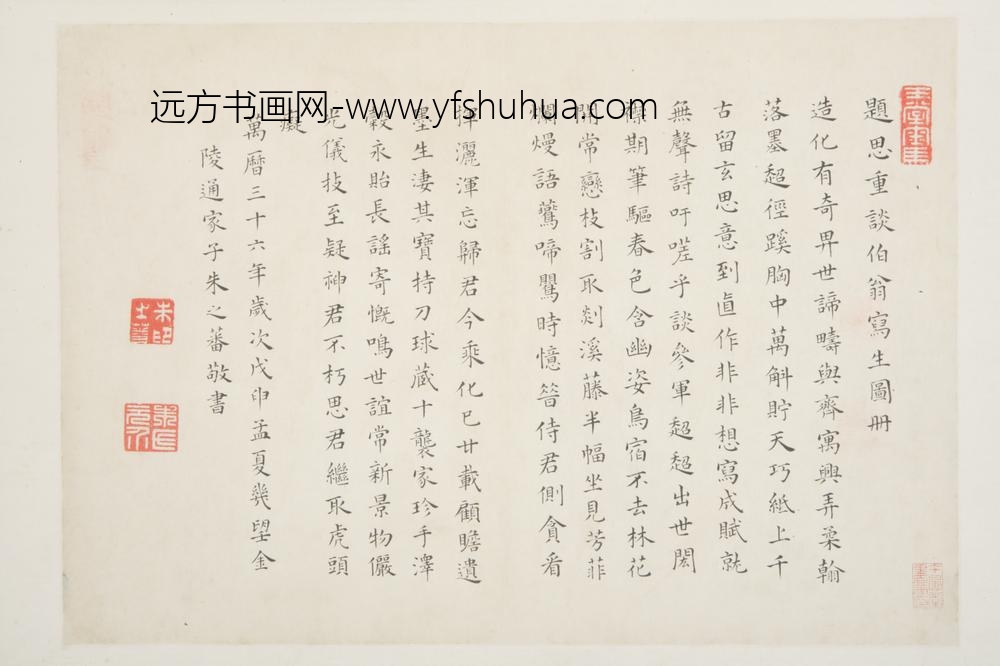 远方书画网-www.yfshuhua.com
題思重談伯翁寫生圖册
造化有奇畀世諦疇與齊寓興弄柔翰
落墨超徑蹊胸中萬斛貯天巧紙上千
古留玄思意到直作非非想寫成賦就
無聲詩吁嗟乎談參軍超超出世閎
襟期筆驅春色含幽姿鳥宿不去林花
開常戀枝割取剡溪藤半幅坐見芳菲
爛熳語鶯啼鷪時憶昝侍君側貪看
揮灑渾忘歸君今乘化已廿載顧瞻遺
墨生淒其寶持刀球蔵十襲家珍手澤
穀永貽長謠寄慨鳴世誼常新景物儼
光儀技至疑神君不朽思君繼取虎頭
癡
萬曆三十六年歲次戊申孟夏幾望金
陵通家子朱之蕃敬書
朱印